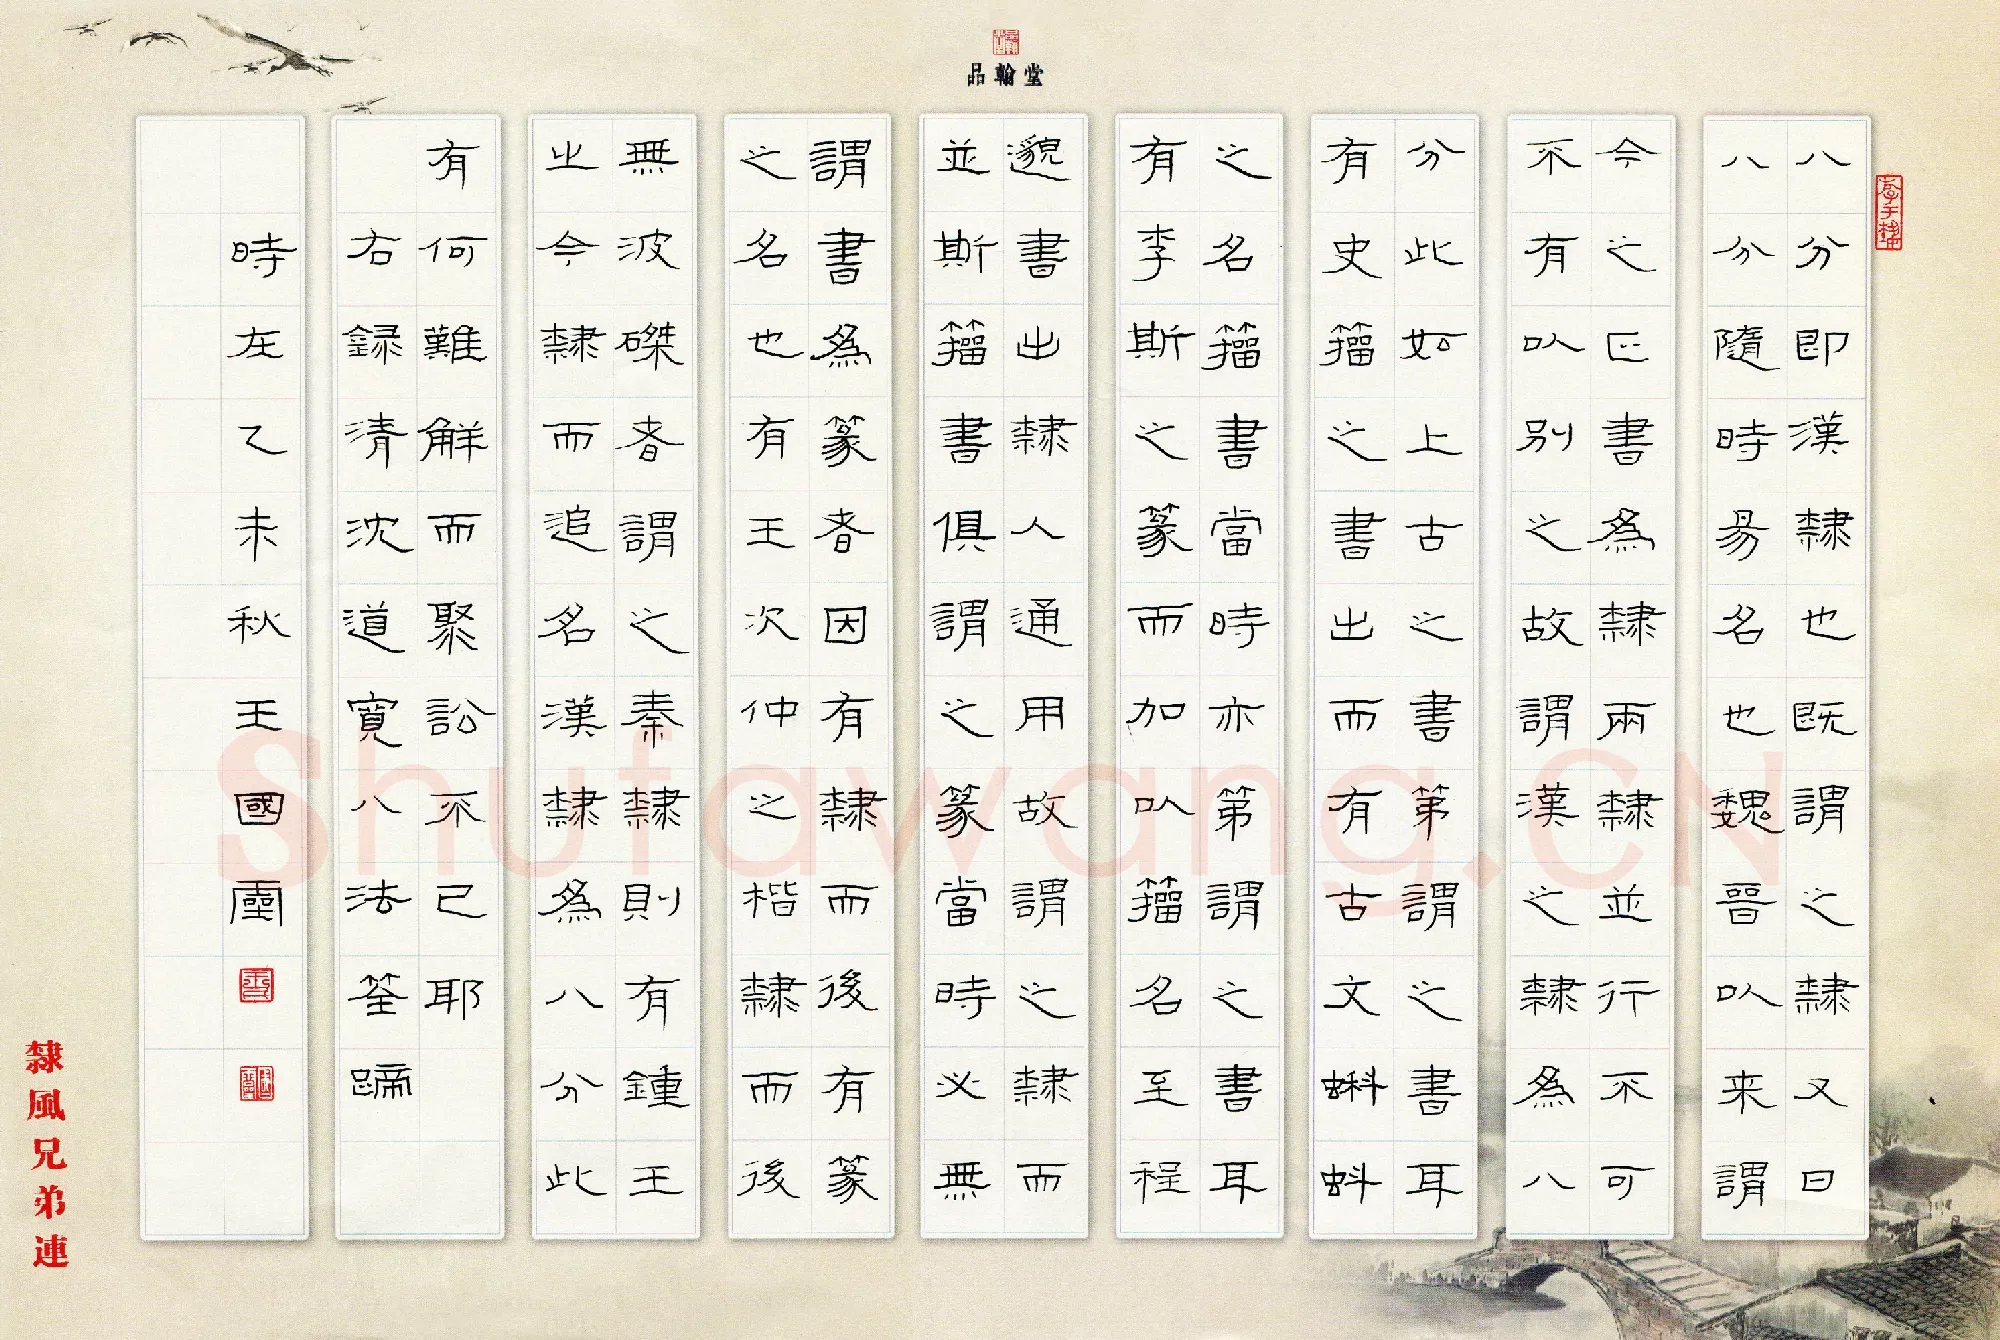 品翰堂
八分即漢隸也既謂之隸又曰
八分隨時易名也魏晉以来謂
今之正書為隸兩隸並行不可
不有以別之故謂漢隸為八
分此如上古之書第謂之書耳
有史籀之書出而有古文蝌蚪
之名籀書當時亦第謂之書耳
有李斯之篆而加以籀名至程
邈書出隸人通用故謂之隸而
並斯籀書俱謂之篆當時必無
謂書為篆者因有隸而後有篆
之名也有王次仲之楷隸而後
無波磔者謂之秦隸則有鍾王
之今隸而追名漢隸為八分此
有何難解而聚訟不已耶
右録清沈道寬八法筌蹄
時在乙未秋王國
隸風兄弟連
Shufawang.CN